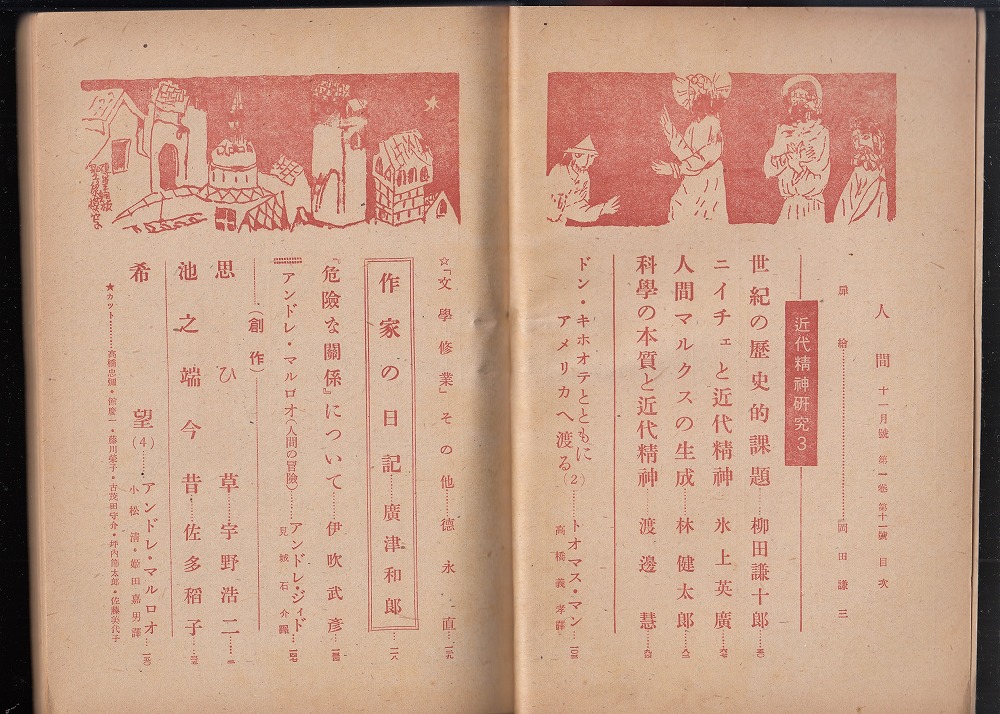 人間 十一月號 第一卷 第十一號 目次
扉繪………岡田謙三
近代精神研究3
世紀の歷史的課題……柳田謙十郎……五〇
ニイチェと近代精神……氷上英廣……六七
人間マルクスの生成……林健太郎……八二
科學の本質と近代精神……渡邊慧……九四
ドン・キホオテとともに
アメリカへ渡る(2)……トオマス・マン……一〇三
高橋義孝譯
☆「文學修業」その他……德永直……一三九
作家の日記……廣津和郎……一二八
『危險な關係』について……伊吹武彥……一三四
アンドレ・マルロオ(人間の冒險)……アンドレ・ジイド……一四七
見城石介譯
(創作)
思ひ草……宇野浩二……
池之端今昔……佐多稻子……
希望(4)……アンドレ・マルロオ……一五〇
小松淸・姬田嘉男譯
★カット………高橋忠彌・館慶一・藤川榮子・古茂田守介・坪内節太郎・佐藤美代子